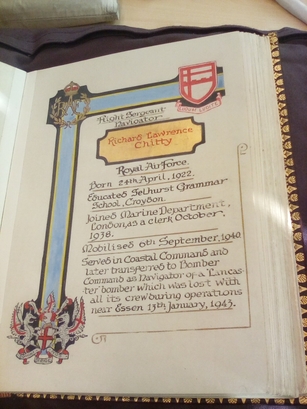 Flight Sergeant
Navigator
Richard Lawrence
Chitty
Royal Air Force.
Born 24th April, 1922.
Educated Selhurst Grammar
School, Croydon.
Joined Marine Department,
London, as a clerk October,
1938.
Mobilised 6th September, 1940.
Served in Coastal Command and
later transferred to Bomber
Command as Navigator of a "Lancas-
ter" bomber which was lost with
all its crew during operations
near Essen 13th January, 1943.